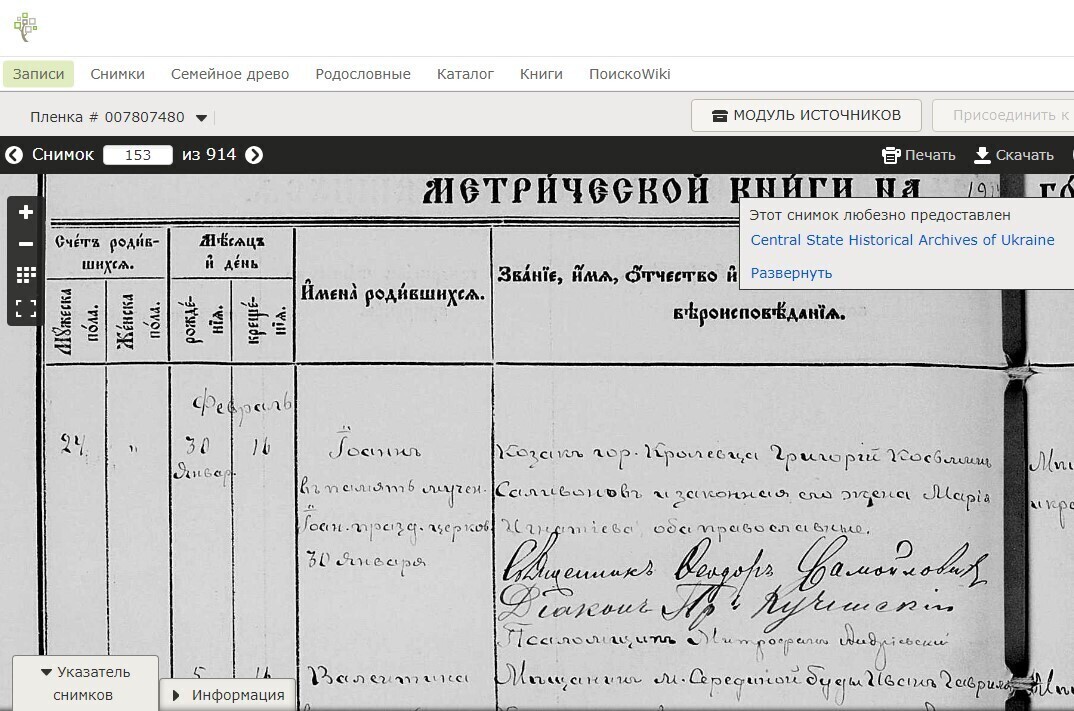 Записи Снимки Семейное древо Родословные Каталог Книги ПоискоWiki
Пленка # 007807480
МОДУЛЬ ИСТОЧНИКОВ
Присоединить к
Снимок 153 из 914
Печать Скачать
МЕТРИ́ЧЕСКОЙ КНИ́ГИ НА 191 ГО́
Этот снимок любезно предоставлен
Central State Historical Archives of Ukraine
Развернуть
Сче́тъ роди́в-
шихся.
Мѣ́сяцъ
и҆ де́нь
И҆мена̀ роди́вшихся.
Зва́нїе, и҆́мѧ, Ѻ҆́тчество и҆
вѣроисповѣ́данїѧ.
Мꙋ́жеска
по́ла.
Же́нска
по́ла.
рожде́-
нїѧ.
креще́-
нїѧ.
Февраль
24 " 30 16 Іоаннъ Козакъ гор. Кролевца Григорій Косьминъ
Январ. въ память мучен. Саливоновъ и законная его жена Марія
Іоан. празд. церков. Игнатіева, оба православные.
30 Января Священникъ Ѳеодоръ Самойловичъ
Діаконъ Кучинскій
Псаломщикъ Митрофанъ Андріевскій
5 16 Валентина Мѣщанинъ м. Середіной буды Иванъ Гаврило
Указатель
снимков
Информация